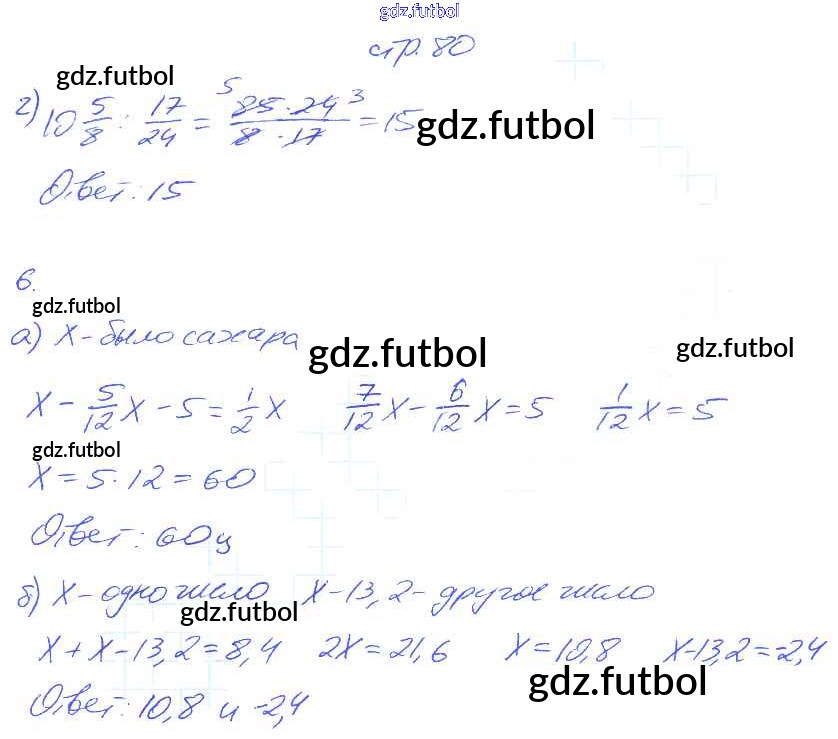 gdz.futbol
стр. 80
gdz.futbol
г) 10 5/8 : 17/24 = (85 · 24)/(8 · 17) = 15 5 3
gdz.futbol
Ответ: 15
6.
gdz.futbol
а) х - было сахара
gdz.futbol gdz.futbol
х - 5/12 х - 5 = 1/2 х 7/12 х - 6/12 х = 5 1/12 х = 5
gdz.futbol
х = 5 · 12 = 60
Ответ: 60 ц
б) х - одно число х - 13,2 - другое число
gdz.futbol
х + х - 13,2 = 8,4 2х = 21,6 х = 10,8 х - 13,2 = -2,4
gdz.futbol
Ответ: 10,8 и -2,4